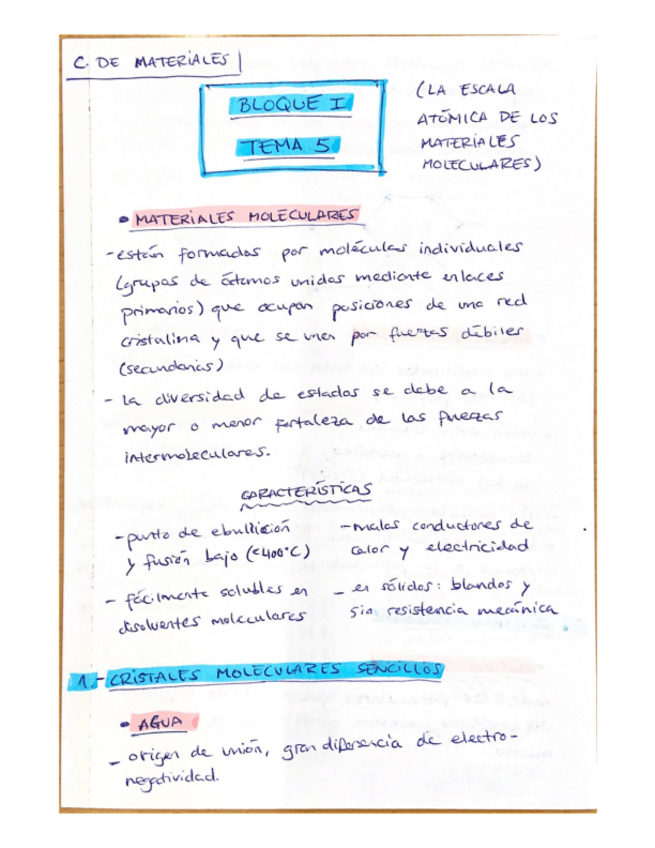 C. DE MATERIALES
BLOQUE I
TEMA 5
(LA ESCALA
ATÓMICA DE LOS
MATERIALES
MOLECULARES)
• MATERIALES MOLECULARES
- están formados por moléculas individuales
(grupos de átomos unidos mediante enlaces
primarios) que ocupan posiciones de una red
cristalina y que se unen por fuertas débiles
(secundarias)
- La diversidad de estados se debe a la
mayor o menor fortaleza de las fuerzas
intermoleculares.
CARACTERÍSTICAS
- punto de ebullición
y fusión bajo (<400°C)
- fácilmente solubles en
disolventes moleculares
- malos conductores de
calor y electricidad
- en sólidos: blandos y
sin resistencia mecánica
1.- CRISTALES MOLECULARES SENCILLOS
• AGUA
- origen de unión, gran diferencia de electro-
negatividad.